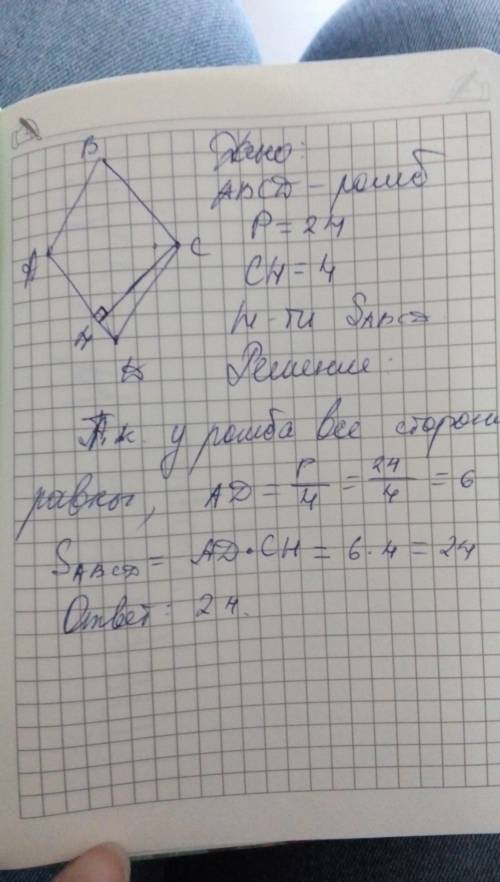 B
A
C
H
D
Дано:
ABCD - ромб
P = 24
CH = 4
Н-ти SABCD
Решение:
Т.к. у ромба все сторон
равны, AD = P/4 = 24/4 = 6
SABCD = AD·CH = 6·4 = 24
Ответ: 24.